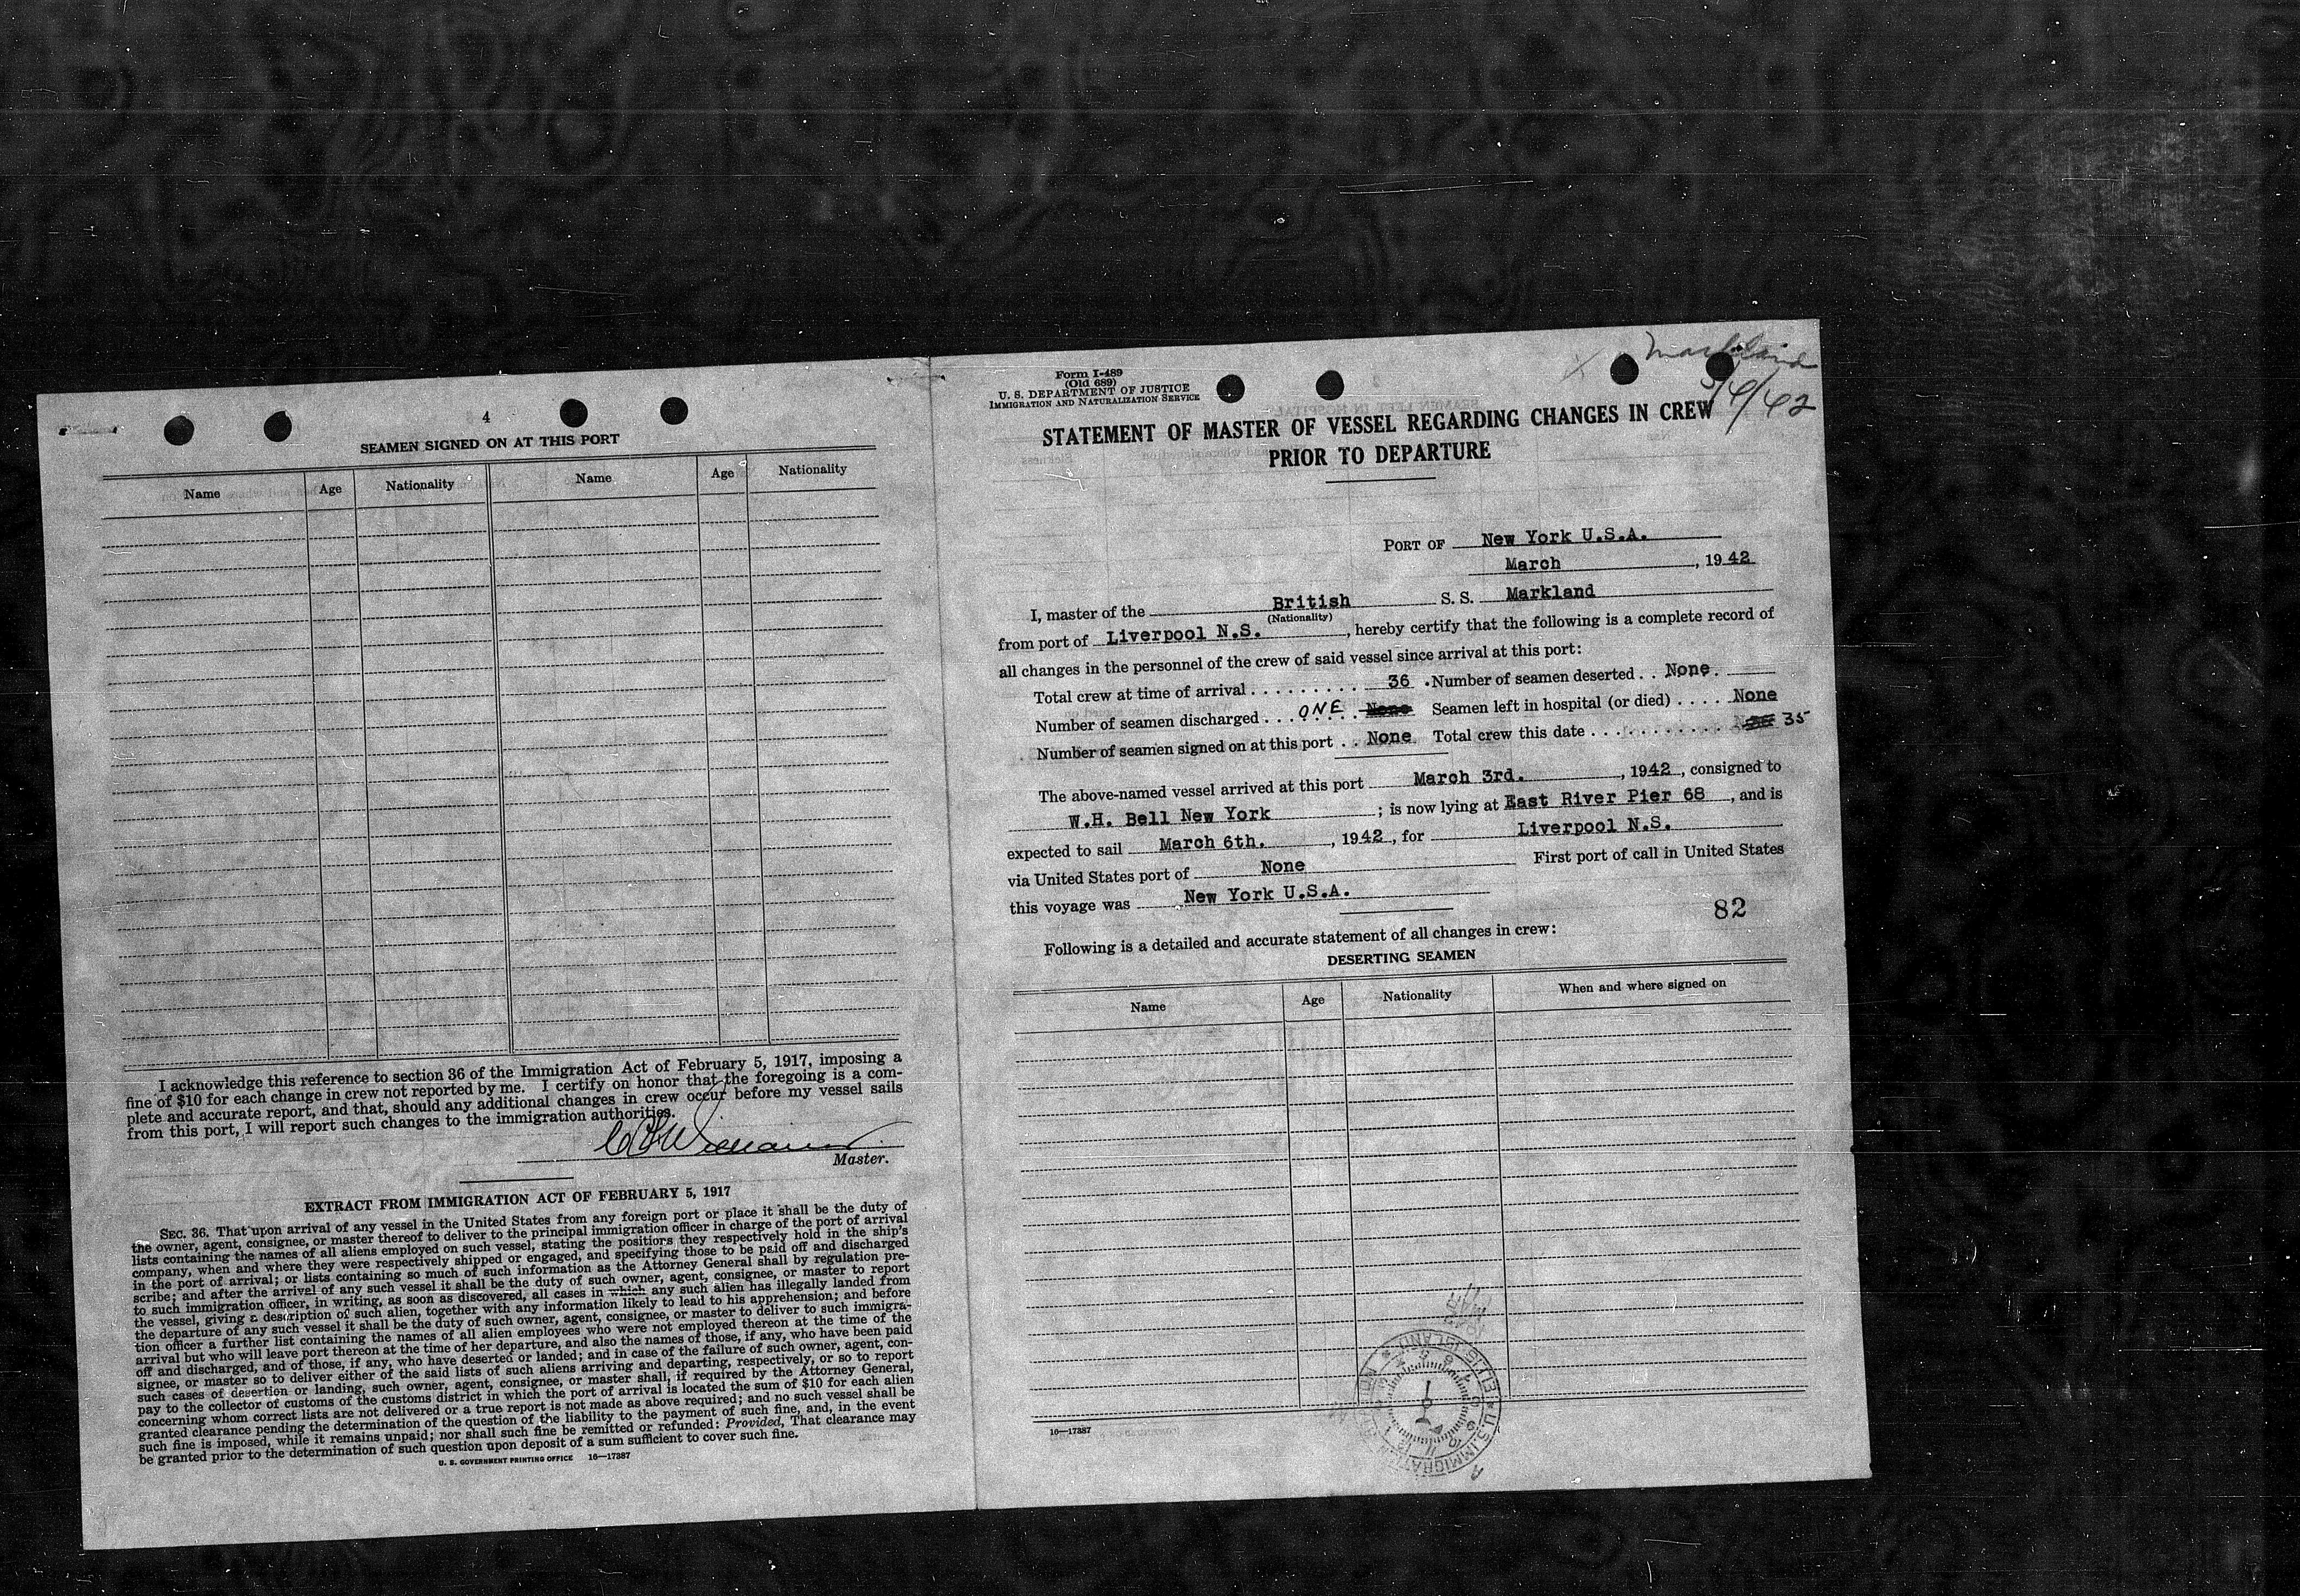 4
SEAMEN SIGNED ON AT THIS PORT
Name Age Nationality Name Age Nationality
I acknowledge this reference to section 36 of the Immigration Act of February 5, 1917, imposing a
fine of $10 for each change in crew not reported by me. I certify on honor that the foregoing is a com-
plete and accurate report, and that, should any additional changes in crew occur before my vessel sails
from this port, I will report such changes to the immigration authorities.
Master.
EXTRACT FROM IMMIGRATION ACT OF FEBRUARY 5, 1917
SEC. 36. That upon arrival of any vessel in the United States from any foreign port or place it shall be the duty of
the owner, agent, consignee, or master thereof to deliver to the principal immigration officer in charge of the port of arrival
lists containing the names of all aliens employed on such vessel, stating the positions they respectively hold in the ship's
company, when and where they were respectively shipped or engaged, and specifying those to be paid off and discharged
in the port of arrival; or lists containing so much of such information as the Attorney General shall by regulation pre-
scribe; and after the arrival of any such vessel it shall be the duty of such owner, agent, consignee, or master to report
to such immigration officer, in writing, as soon as discovered, all cases in which any such alien has illegally landed from
the vessel, giving a description of such alien, together with any information likely to lead to his apprehension; and before
the departure of any such vessel it shall be the duty of such owner, agent, consignee, or master to deliver to such immigra-
tion officer a further list containing the names of all alien employees who were not employed thereon at the time of the
arrival but who will leave port thereon at the time of her departure, and also the names of those, if any, who have been paid
off and discharged, and of those, if any, who have deserted or landed; and in case of the failure of such owner, agent, con-
signee, or master so to deliver either of the said lists of such aliens arriving and departing, respectively, or so to report
such cases of desertion or landing, such owner, agent, consignee, or master shall, if required by the Attorney General,
pay to the collector of customs of the customs district in which the port of arrival is located the sum of $10 for each alien
concerning whom correct lists are not delivered or a true report is not made as above required; and no such vessel shall be
granted clearance pending the determination of the question of the liability to the payment of such fine, and, in the event
such fine is imposed, while it remains unpaid; nor shall such fine be remitted or refunded: Provided, That clearance may
be granted prior to the determination of such question upon deposit of a sum sufficient to cover such fine.
U. S. GOVERNMENT PRINTING OFFICE 16—17387
Markland
3/4/42
Form I-489
(Old 689)
U. S. DEPARTMENT OF JUSTICE
IMMIGRATION AND NATURALIZATION SERVICE
STATEMENT OF MASTER OF VESSEL REGARDING CHANGES IN CREW
PRIOR TO DEPARTURE
PORT OF New York U.S.A.
March, 1942
I, master of the British S. S. Markland
(Nationality)
from port of Liverpool N.S., hereby certify that the following is a complete record of
all changes in the personnel of the crew of said vessel since arrival at this port:
Total crew at time of arrival . . . . . . . . . 36 . Number of seamen deserted . . None.
Number of seamen discharged . . . ONE . . . None Seamen left in hospital (or died) . . . . None
Number of seamen signed on at this port . . None Total crew this date . . . . . . . . . . . . 35
The above-named vessel arrived at this port March 3rd., 1942, consigned to
W.H. Bell New York; is now lying at East River Pier 68, and is
expected to sail March 6th., 1942, for Liverpool N.S.
via United States port of None First port of call in United States
this voyage was New York U.S.A.
82
Following is a detailed and accurate statement of all changes in crew:
DESERTING SEAMEN
Name Age Nationality When and where signed on
16—17387
U.S. IMMIGRATION
ELLIS ISLAND